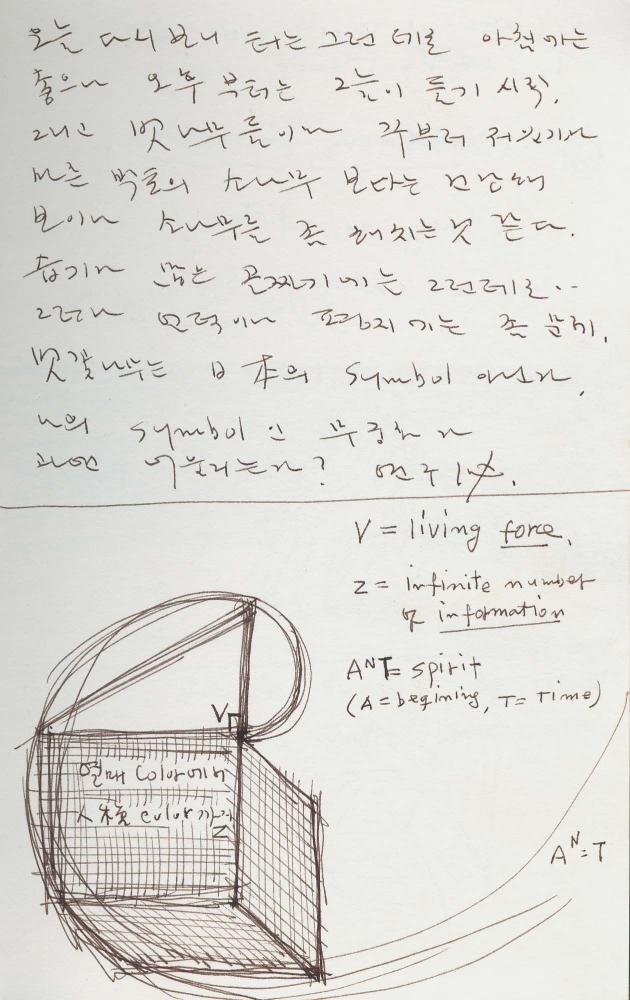 오늘 다시 보니 터는 그런데로 아침에는
좋으나 오후 부터는 그늘이 들기 시작.
그리고 벚나무들이나
소나무 보다는 건강해
보이나 소나무를 좀 해치는것 같다.
습기가 많은 골짜기에는 그런데로..
그러나 언덕이나 평지에는 좀 문제.
벚꽃나무는 日本의 symbol 아닌가.
나의 symbol 인 무궁화가
과연 어울리는가? 연구
V = living force.
Z = infinite number
of information
Aᴺ⁼T= spirit
(A = begining, T= Time)
V
열매 Color에서
color까지
Z
Aᴺ=T